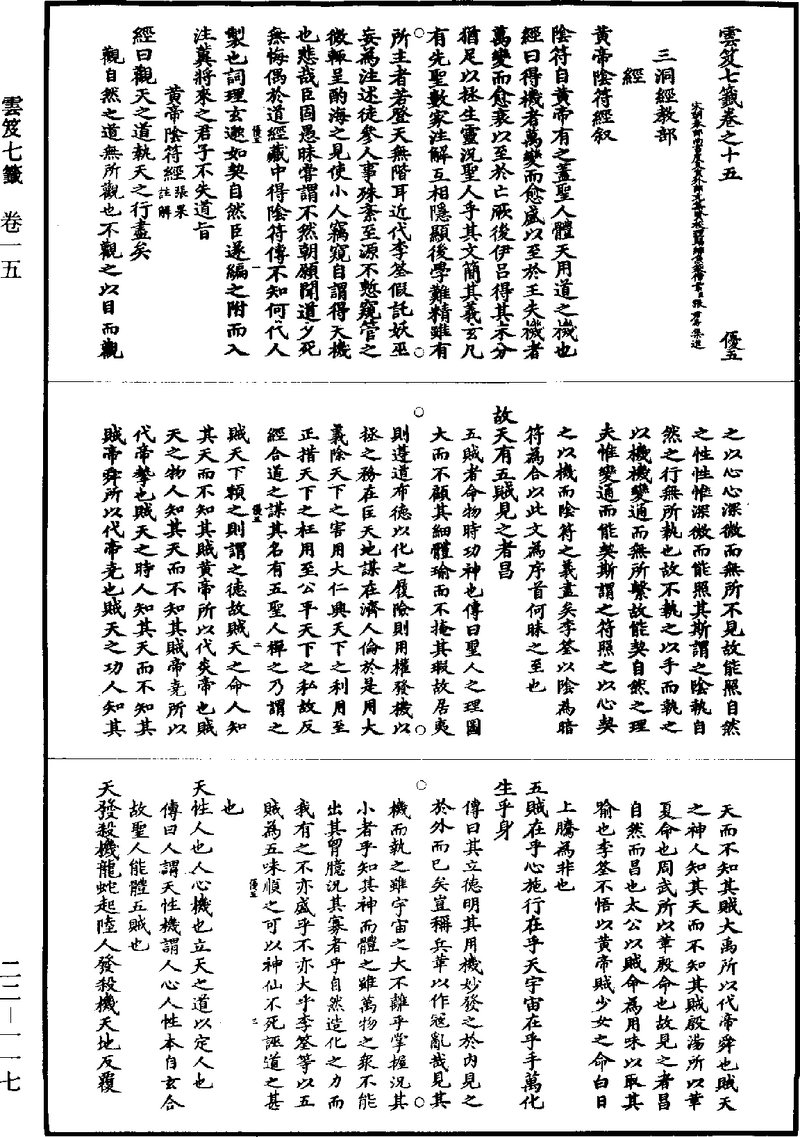 雲笈七籤卷之十五 優五
宋朝奉郎尚書度支員外郎充集賢校理賜緋魚袋借紫臣張君房集進
三洞經教部
經
黃帝陰符經叙
陰符自黃帝有之蓋聖人體天用道之機也
經曰得機者萬變而愈盛以至於王失機者
萬變而愈衰以至於亡厥後伊呂得其末分
猶足以拯生靈況聖人乎其文簡其義玄凡
有先聖數家注解互相隱顯後學難精雖有
所主者若登天無階耳近代李筌假託妖巫
妄為注述徒參人事殊紊至源不慙窺管之
微輒呈酌海之見使小人竊窺自謂得天機
也悲哉臣固愚昧嘗謂不然朝願聞道夕死
無悔偶於道經藏中得陰符傳不知何代人
優五 一
製也詞理玄邈如契自然臣遂編之附而入
注冀將來之君子不失道旨
黃帝陰符經張果註解
經曰觀天之道執天之行盡矣
觀自然之道無所觀也不觀之以目而觀
之以心心深微而無所不見故能照自然
之性性惟深微而能照其斯謂之陰執自
然之行無所執也故不執之以手而執之
以機機變通而無所繫故能契自然之理
夫惟變通而能契斯謂之符照之以心契
之以機而陰符之義盡矣李筌以陰為暗
符為合以此文為序首何昧之至也
故天有五賊見之者昌
五賊者命物時功神也傳曰聖人之理圖
大而不顧其細體瑜而不掩其瑕故居夷
則遵道布德以化之履險則用權發機以
拯之務在匡天地謀在濟人倫於是用大
義除天下之害用大仁興天下之利用至
正措天下之枉用至公平天下之私故反
經合道之謀其名有五聖人禪之乃謂之
優五 二
賊天下賴之則謂之德故賊天之命人知
其天而不知其賊黃帝所以代炎帝也賊
天之物人知其天而不知其賊帝堯所以
代帝摯也賊天之時人知其天而不知其
賊帝舜所以代帝堯也賊天之功人知其
天而不知其賊大禹所以代帝舜也賊天
之神人知其天而不知其賊殷湯所以革
夏命也周武所以革殷命也故見之者昌
自然而昌也太公以賊命為用味以取其
喻也李筌不悟以黃帝賊少女之命白日
上騰為非也
五賊在乎心施行在乎天宇宙在乎手萬化
生乎身
傳曰其立德明其用機妙發之於內見之
於外而已矣豈稱兵革以作寇亂哉見其
機而執之雖宇宙之大不離乎掌握況其
小者乎知其神而體之雖萬物之衆不能
出其胷臆況其寡者乎自然造化之力而
我有之不亦盛乎不亦大乎李筌等以五
賊為五味順之可以神仙不死誣道之甚
優五 三
也
天性人也人心機也立天之道以定人也
傳曰人謂天性機謂人心人性本自玄合
故聖人能體五賊也
天發殺機龍蛇起陸人發殺機天地反覆
雲笈七籤 卷一五
二二—一一七